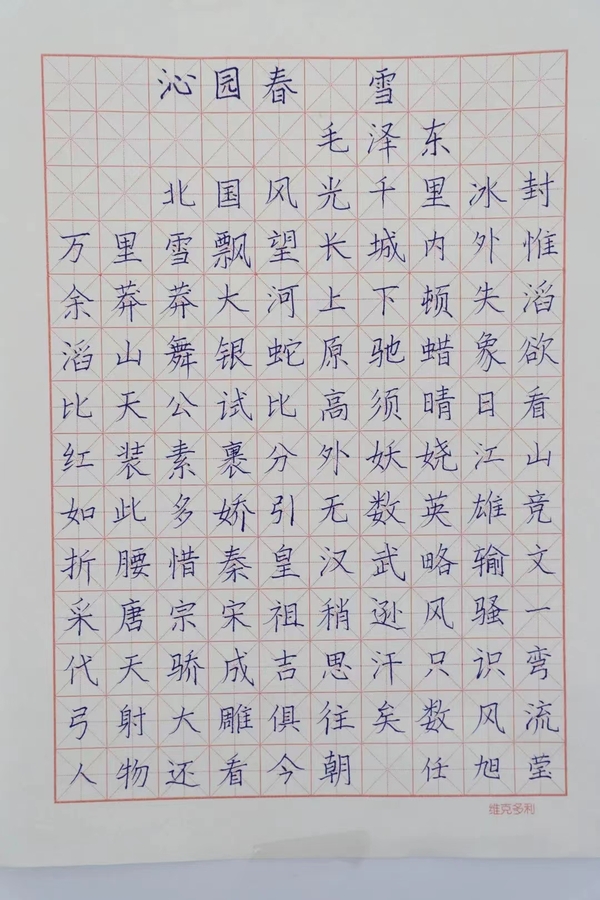 沁园春 雪
毛泽东
北国风光千里冰封
万里雪飘望长城内外惟
余莽莽大河上下顿失滔
滔山舞银蛇原驰蜡象欲
比天公试比高须晴日看
红装素裹分外妖娆江山
如此多娇引无数英雄竞
折腰惜秦皇汉武略输文
采唐宗宋祖稍逊风骚一
代天骄成吉思汗只识弯
弓射大雕俱往矣数风流
人物还看今朝 任旭莹
维克多利